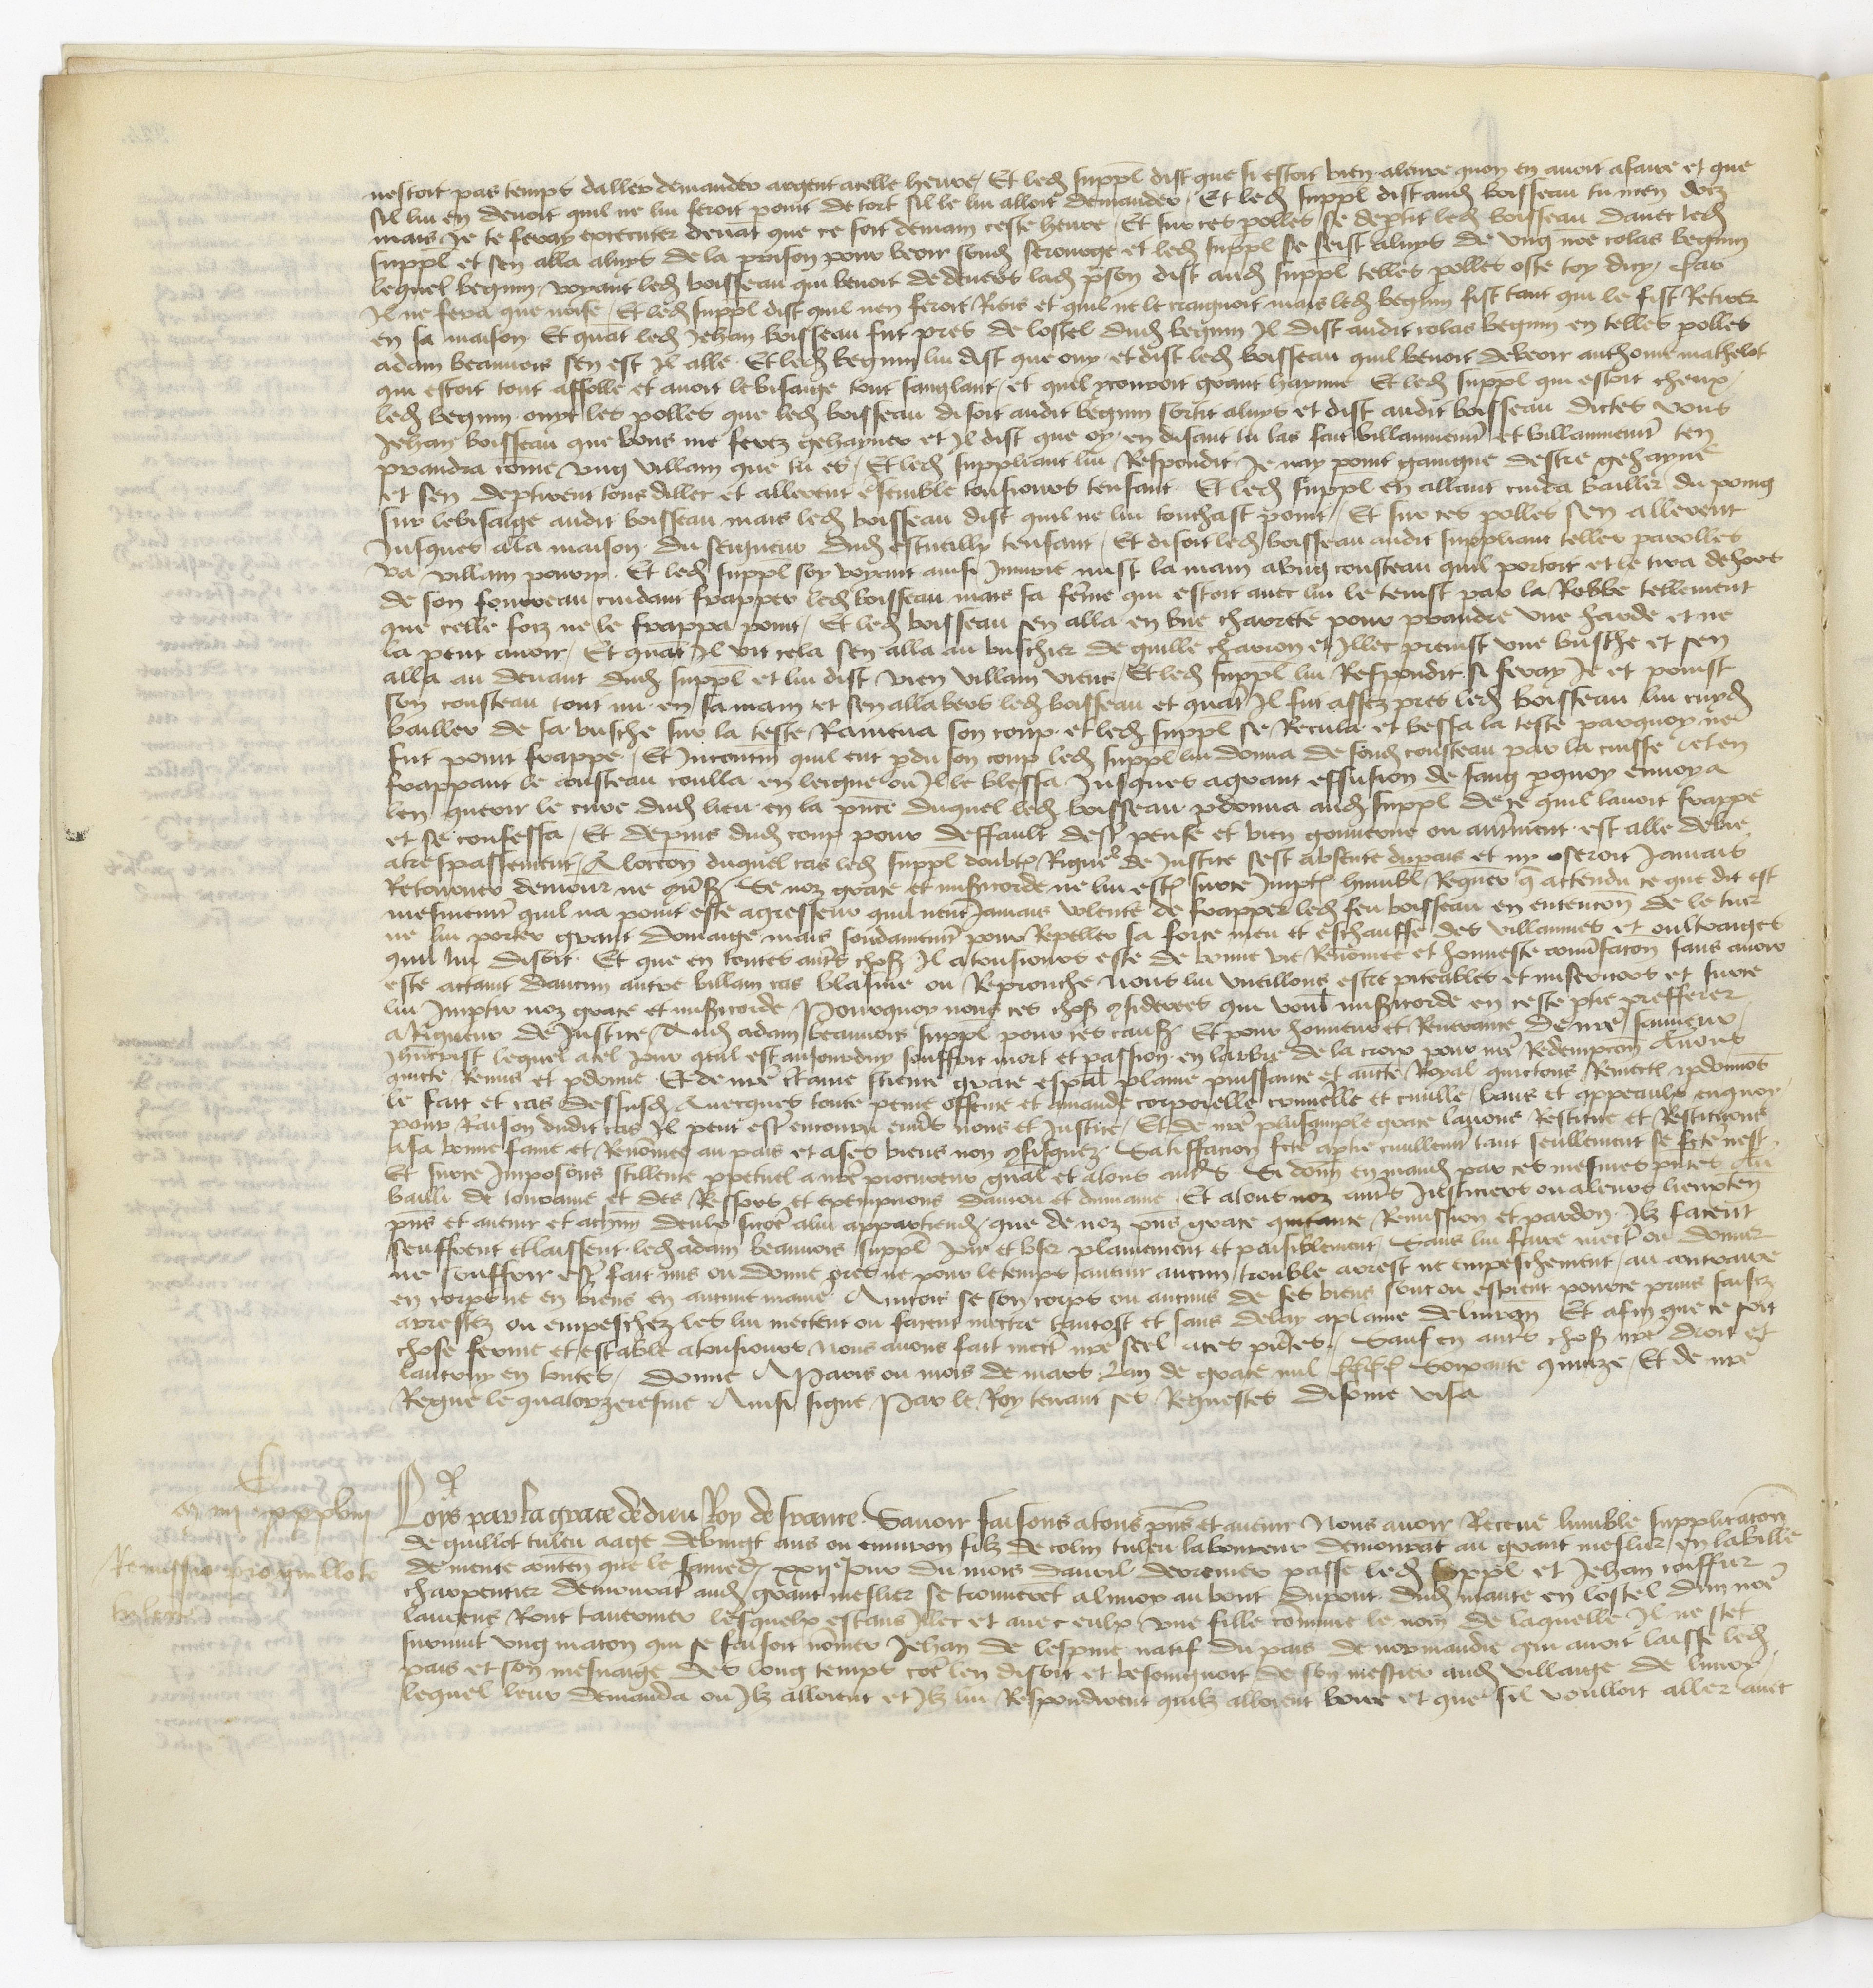 nestoit pas temps daller demander argent a telle heure Et led suppl dist que si estoit bien aleure quon en avoit afaire et que
sil lui en devoit quil ne lui feroit point de tort sil le lui alloit demander Et led suppl dist aud boisseau tu men doiz
mais Je te feray executer devat que ce soit demain ceste heure Et sur ces polles se deptit led boisseau davec led
suppl et sen alla aluys de la prison pour veoir sond serourge et led suppl se seist aluys de ung nōe colas beguin
lequel beguin voyant led boisseau qui venoit de devers lad pson dist aud suppl telles polles oste toy dicy car
Il ne fera que noise Et led suppl dist quil nen feroit Riens et quil ne le craignoit mais led beguin fist tant qui le fist Retirer
en sa maison Et quāt led Jehan boisseau fut pres de lostel dud beguin Il dist audit colas beguin en telles polles
adam beauvois sen est Il alle Et led beguin lui dist que ouy et dist led boisseau quil venoit de veoir anthoine mathelot
qui estoit tout affolle et avoit le visaige tout sanglant et quil y couroit grant harme Et led suppl qui estoit cheux
led beguin ouyt les polles que led boisseau disoit audit beguin sortit aluys et dist audit boisseau dictes vous
Jehan boisseau que vous me ferez gehayner et Il dist que oy en disant tu las fait villainnemt et villainnemt ten
prandra cōme ung villain que tu es Et led suppliant lui Respondit Je nay point gaingne destre gehayne
et sen deptirent tous dillec et allerent ēsemble tousiours tensant Et led suppl en allant cuida bailler du poing
sur le visaige audit boisseau mais led boisseau dist quil ne lui touchast point Et sur ces polles sen allerent
Jusques ala maison du seigneur dud estueilly tensant Et disoit led boisseau audit suppliant telles parolles
va villain pourry Et led suppl soy voyant ainsi Iniurie mist la main a ung cousteau quil portoit et le tira dehors
de son fourreau cuidant frapper led boisseau mais sa fēme qui estoit avec lui le tenist par la Robbe tellement
que celle foiz ne le frappa point Et led boisseau sen alla en une charrete pour prandre une harde et ne
la peut avoir Et quāt Il vit cela sen alla au buschier de guille charion et Illec prenist une busche et sen
alla au devant dud suppl et lui dist vien villain viens Et led suppl lui Respondit si feray Je et prinst
son cousteau tout nu en sa main et sen alla vers led boisseau et quāt Il fut assez pres led boisseau lui cuyd
bailler de sa busche sur la teste Ramena son coup et led suppl se Recula et bessa la teste parquoy ne
fut point frappe Et Incontin quil eut pdu son coup led suppl lui donna de sond cousteau par la cuisse et en
frappant le cousteau coulla en leigne ou Il le blessa Jusques a grant effusion de sang pquoy envoya
len querir le cure dud lieu en la pnce duquel led boisseau pdonna aud suppl de ce quil lavoit frappe
et se confessa Et depuis dud coup pour deffault destr pense et bien gouverne ou autrement est alle de vie
a trespassement A loccon duquel cas led suppl doubt Riguer de Justice sest absente du pais et ny oseroit Jamais
Retourner demour ne conv Se noz grace et misicorde ne lui est sur ce Imptie humbl Requer q attendu ce que dit est
mesmemt quil na point este agresseur quil neut Jamais volente de frapper led feu boisseau en entencon de le tuer
ne lui porter grant domaige mais soudainemt pour Repeller sa force meu et eschauffe des villainies et oultraiges
quil lui disoit Et que en toutes autrs chos Il a tousiours este de bonne vie Renōmee et honneste convsacon sans avoir
este actaint daucun autre villain cas blasme ou Reprouche Nous lui vueillons estre piteables et misericors et sur ce
lui Imptir noz grace et misicorde Pourquoy nous ces chos considerees qui voul misicorde en ceste ptie prefferer
a Rigueur de Justice Aud adam beauvois suppl pour ces caus Et pour honneur et Reverance de nre sauveur
Jhucrist lequel a tel Jour quil est auiourduy souffrit mort et passion en larbre de la croix pour nre Redempcon Avons
quicte Remis et pdonne Et de nre ctaine science grace espal plaine puissance et auctte Royal quictons Remect pdonnōs
le fait et cas dessusd Avecques toute peine offence et amande corporelle criminelle et civille bans et appeaulx enquoy
pour Raison dudit cas Il peut estr encouru envs nous et Justice Et de nre plus ample grace lavons Restitue et Restituons
a sa bonne fame et Renōmee au pais et a ses biens non confisquez Satisffacion fcte aptie civillemt tant seullement se fcte nest
Et sur ce Imposōns scillence ppetuel a nre procureur gnal et a tous autrs Si donn en mand par ces mesmes pntes Au
bailli de touraine et des Ressors et exempcions danjou et du maine Et a tous noz autrs Justiciers ou aleurs lieuxten
pns et avenir et achun deulx sicōe a lui appartiend que de noz pns grace quitance Remission et pardon Ilz facent
seuffrent et laissent led adam beauvois suppl Joir et user plainement et paisiblement Sans lui faire mectr ou donner
ne souffrir estr fait mis ou donne ores ne pour le temps avenir aucun trouble arrest ne empeschement au contraire
en corps ne en biens en aucune manie Aincois se son corps ou aucuns de ses biens sont ou estoient pour ce prins saisiz
arrestez ou empeschez les lui mectent ou facent mectre tantost et sans delay aplaine delivran Et afin que ce soit
chose ferme et estable atousiours Nous avons fait mectr nre seel a ces pntes Sauf en autrs chos nre droit et
lautruy en toutes Donne A Paris ou mois de mars Lan de grace mil cccc Soixante quinze Et de nre
Regne le quatorzeiesme Ainsi signe Par le Roy tenant ses Requestes Disome visa
Loys par la grace de dieu Roy de france Savoir faisons atous pns et avenir Nous avoir Receue lumble supplicacon
de guillot tuleu aage de vingt ans ou environ filz de colin tuleu laboureur demourāt au grant mesler en la ville
de mente conten que le samed xxiie Jour du mois davril derrenier passe led suppl et Jehan coiffur
charpentier demourāt aud grant meslier se trouveret alimoy au bout du pont dud mante en lostel dun nōe
laurens Ront tavernier lesquelx estans Illec et avec eulx une fille commune le nom de laquelle Il ne scet
survint ung macon qui se faisoit nōmer Jehan de lespine natif du pais de normandie qui avoit laisse led
pais et son mesnaige des long temps cōe len disoit et besoingnoit de son mestier aud villaige de limoy
lequel leur demanda ou Ilz alloient et Ilz lui Respondirent quilz alloient boire et que sil voulloit aller avec
Remissio pro guilloto